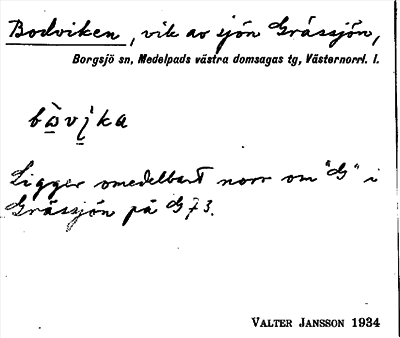 Bodviken, vik av sjön Grässjön,
Borgsjö sn, Medelpads västra domsagas tg, Västernorrl. l.
bòvịka
Ligger omedelbart norr om "G" i
Grässjön på G73.
VALTER JANSSON 1934